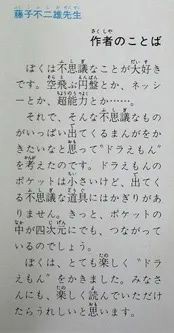 藤子不二雄先生
作者のことば
ぼくは不思議なことが大好き
です。空飛ぶ円盤とか、ネッシ
ーとか、超能力とか……。
それで、そんな不思議なもの
がいっぱい出てくるまんがをか
きたいなと思って〝ドラえもん〟
を考えたのです。ドラえもんの
ポケットは小さいけど、出てく
る不思議な道具にはかぎりがあ
りません。きっと、ポケットの
中が四次元にでも、つながって
いるのでしょう。
ぼくは、とても楽しく〝ドラ
えもん〟をかきました。みなさ
んにも、楽しく読んでいただけ
たらうれしいと思います。